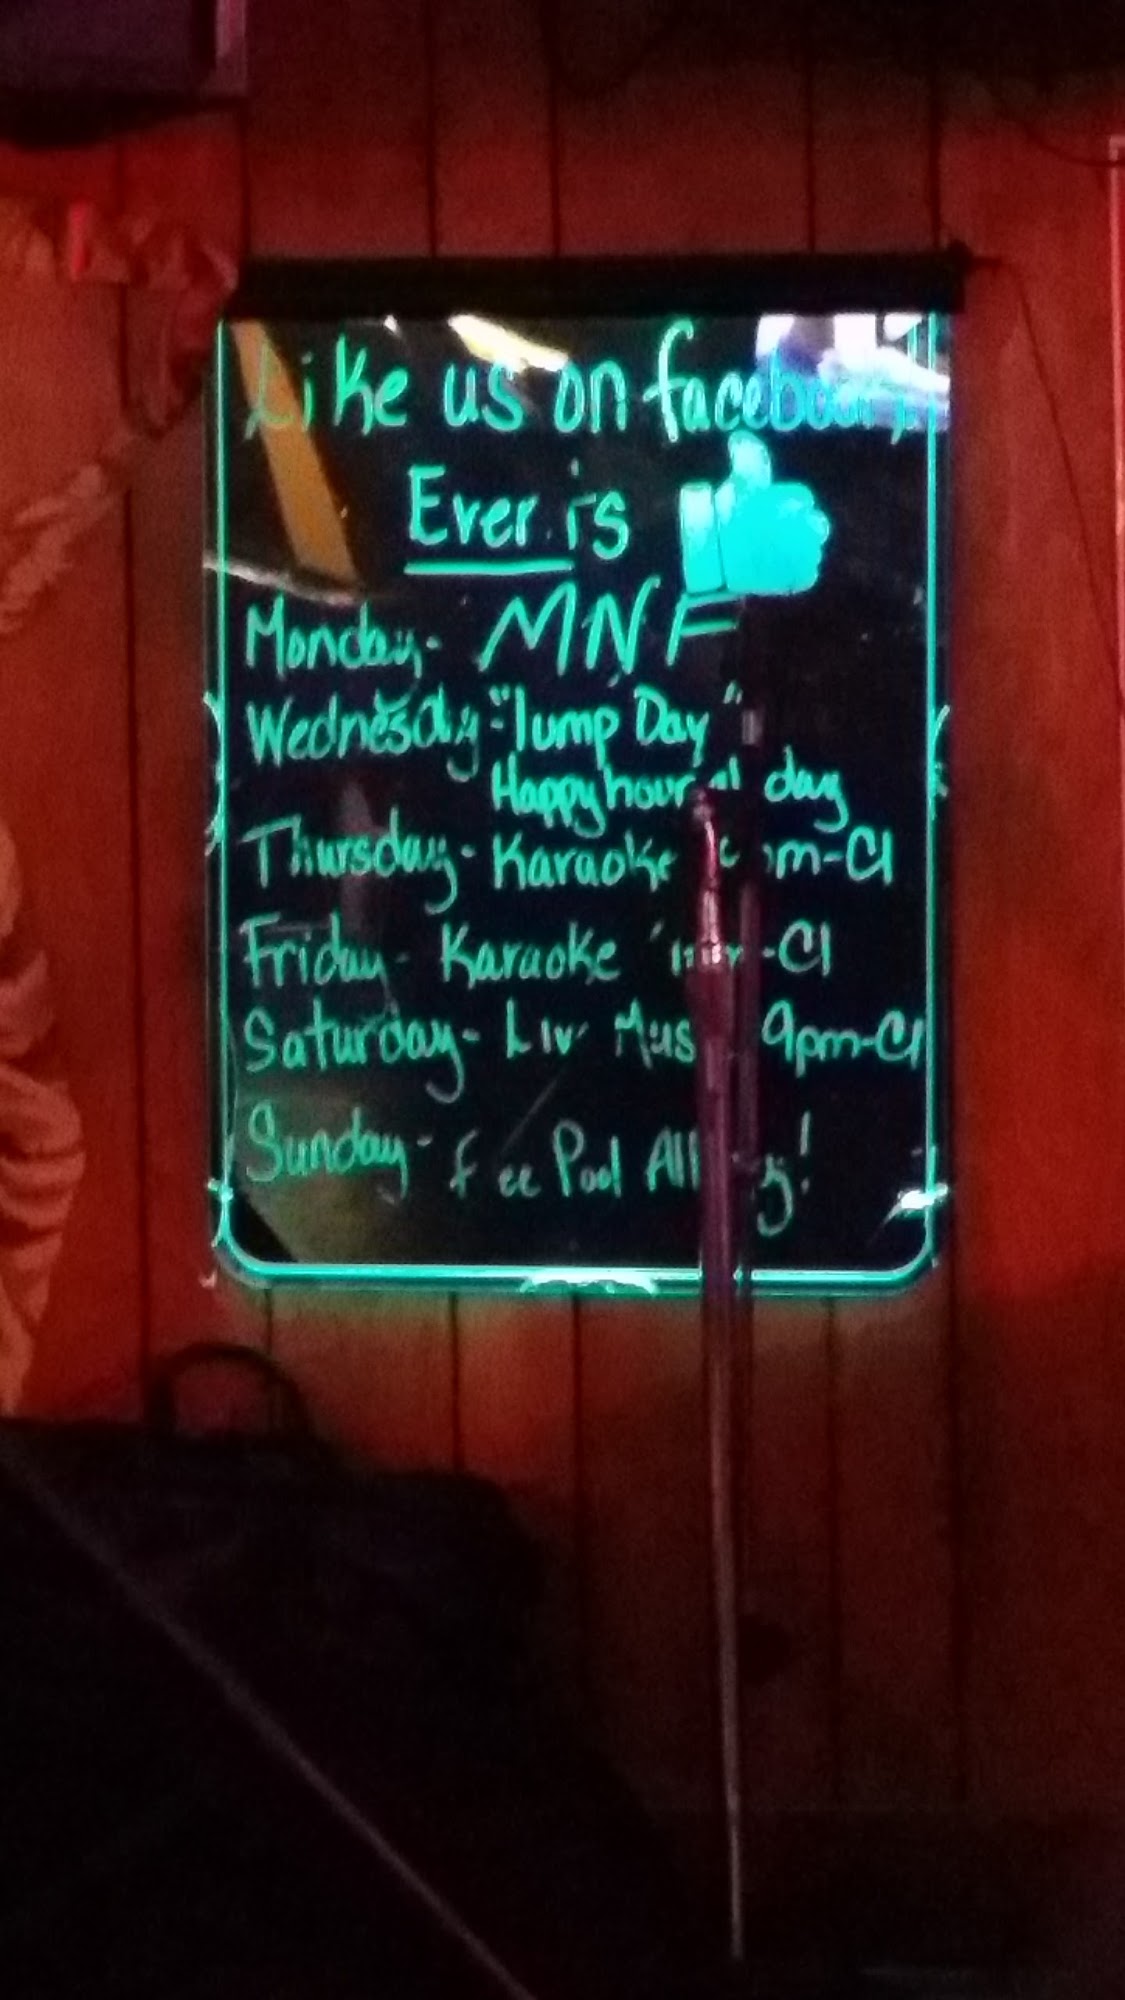 Like us on facebook,
Ever is
Monday- MNF
Wednesday- "Hump Day"
Happy hour all day
Thursday- Karaoke pm-Cl
Friday- Karaoke -Cl
Saturday- Live Music 9pm-Cl
Sunday- Free Pool All Day!